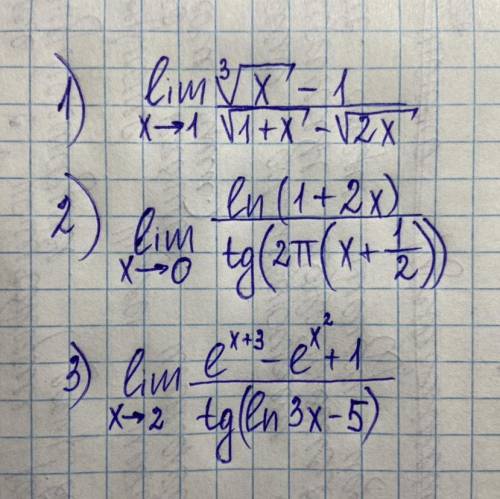 1) lim x→1 (∛x - 1)/(√(1+x) - √(2x))
2) lim x→0 ln(1+2x)/tg(2π(x+1/2))
3) lim x→2 (e^(x+3) - e^(x^2) + 1)/tg(ln3x-5)